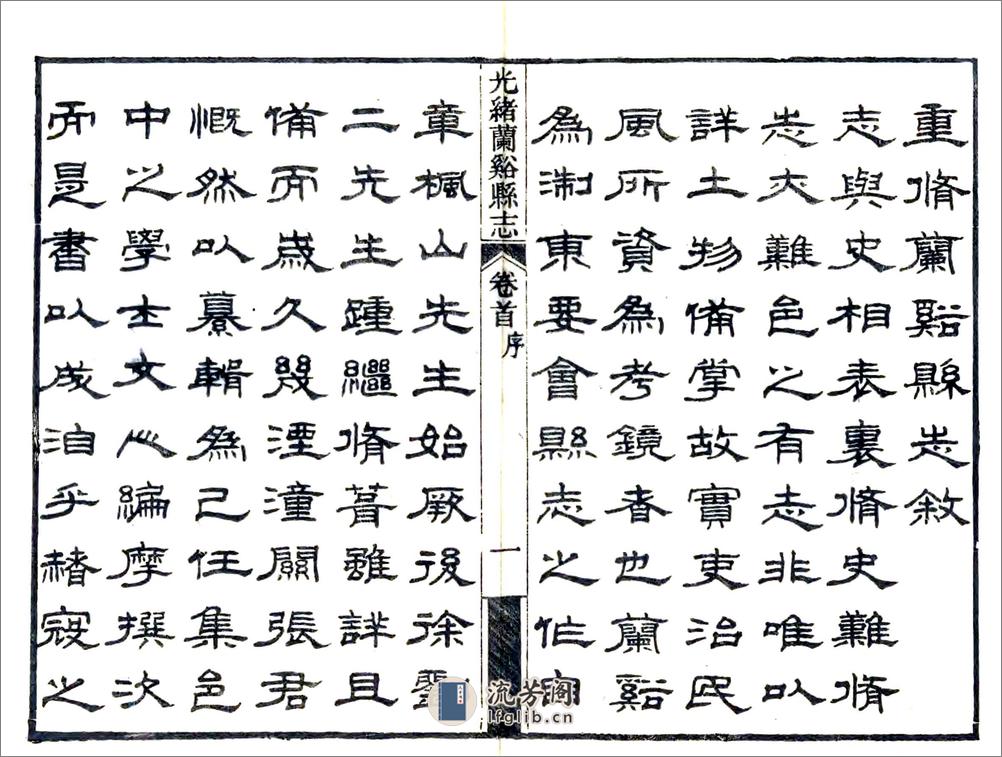 重脩蘭谿縣志敘
志與史相表裏脩史難脩
志亦難邑之有志非唯以
詳土物備掌故實吏治民
風所資為考鏡者也蘭谿
為淛東要會縣志之作自
光緒蘭谿縣志 卷首 序 一
章楓山先生始厥後徐
二先生踵繼脩葺雖詳且
備而歲久幾湮潼關張君
慨然以纂輯為己任集邑
中之學士文心編摩撰次
而是書以成洎乎赭寇之
流芳阁
lfglib.cn